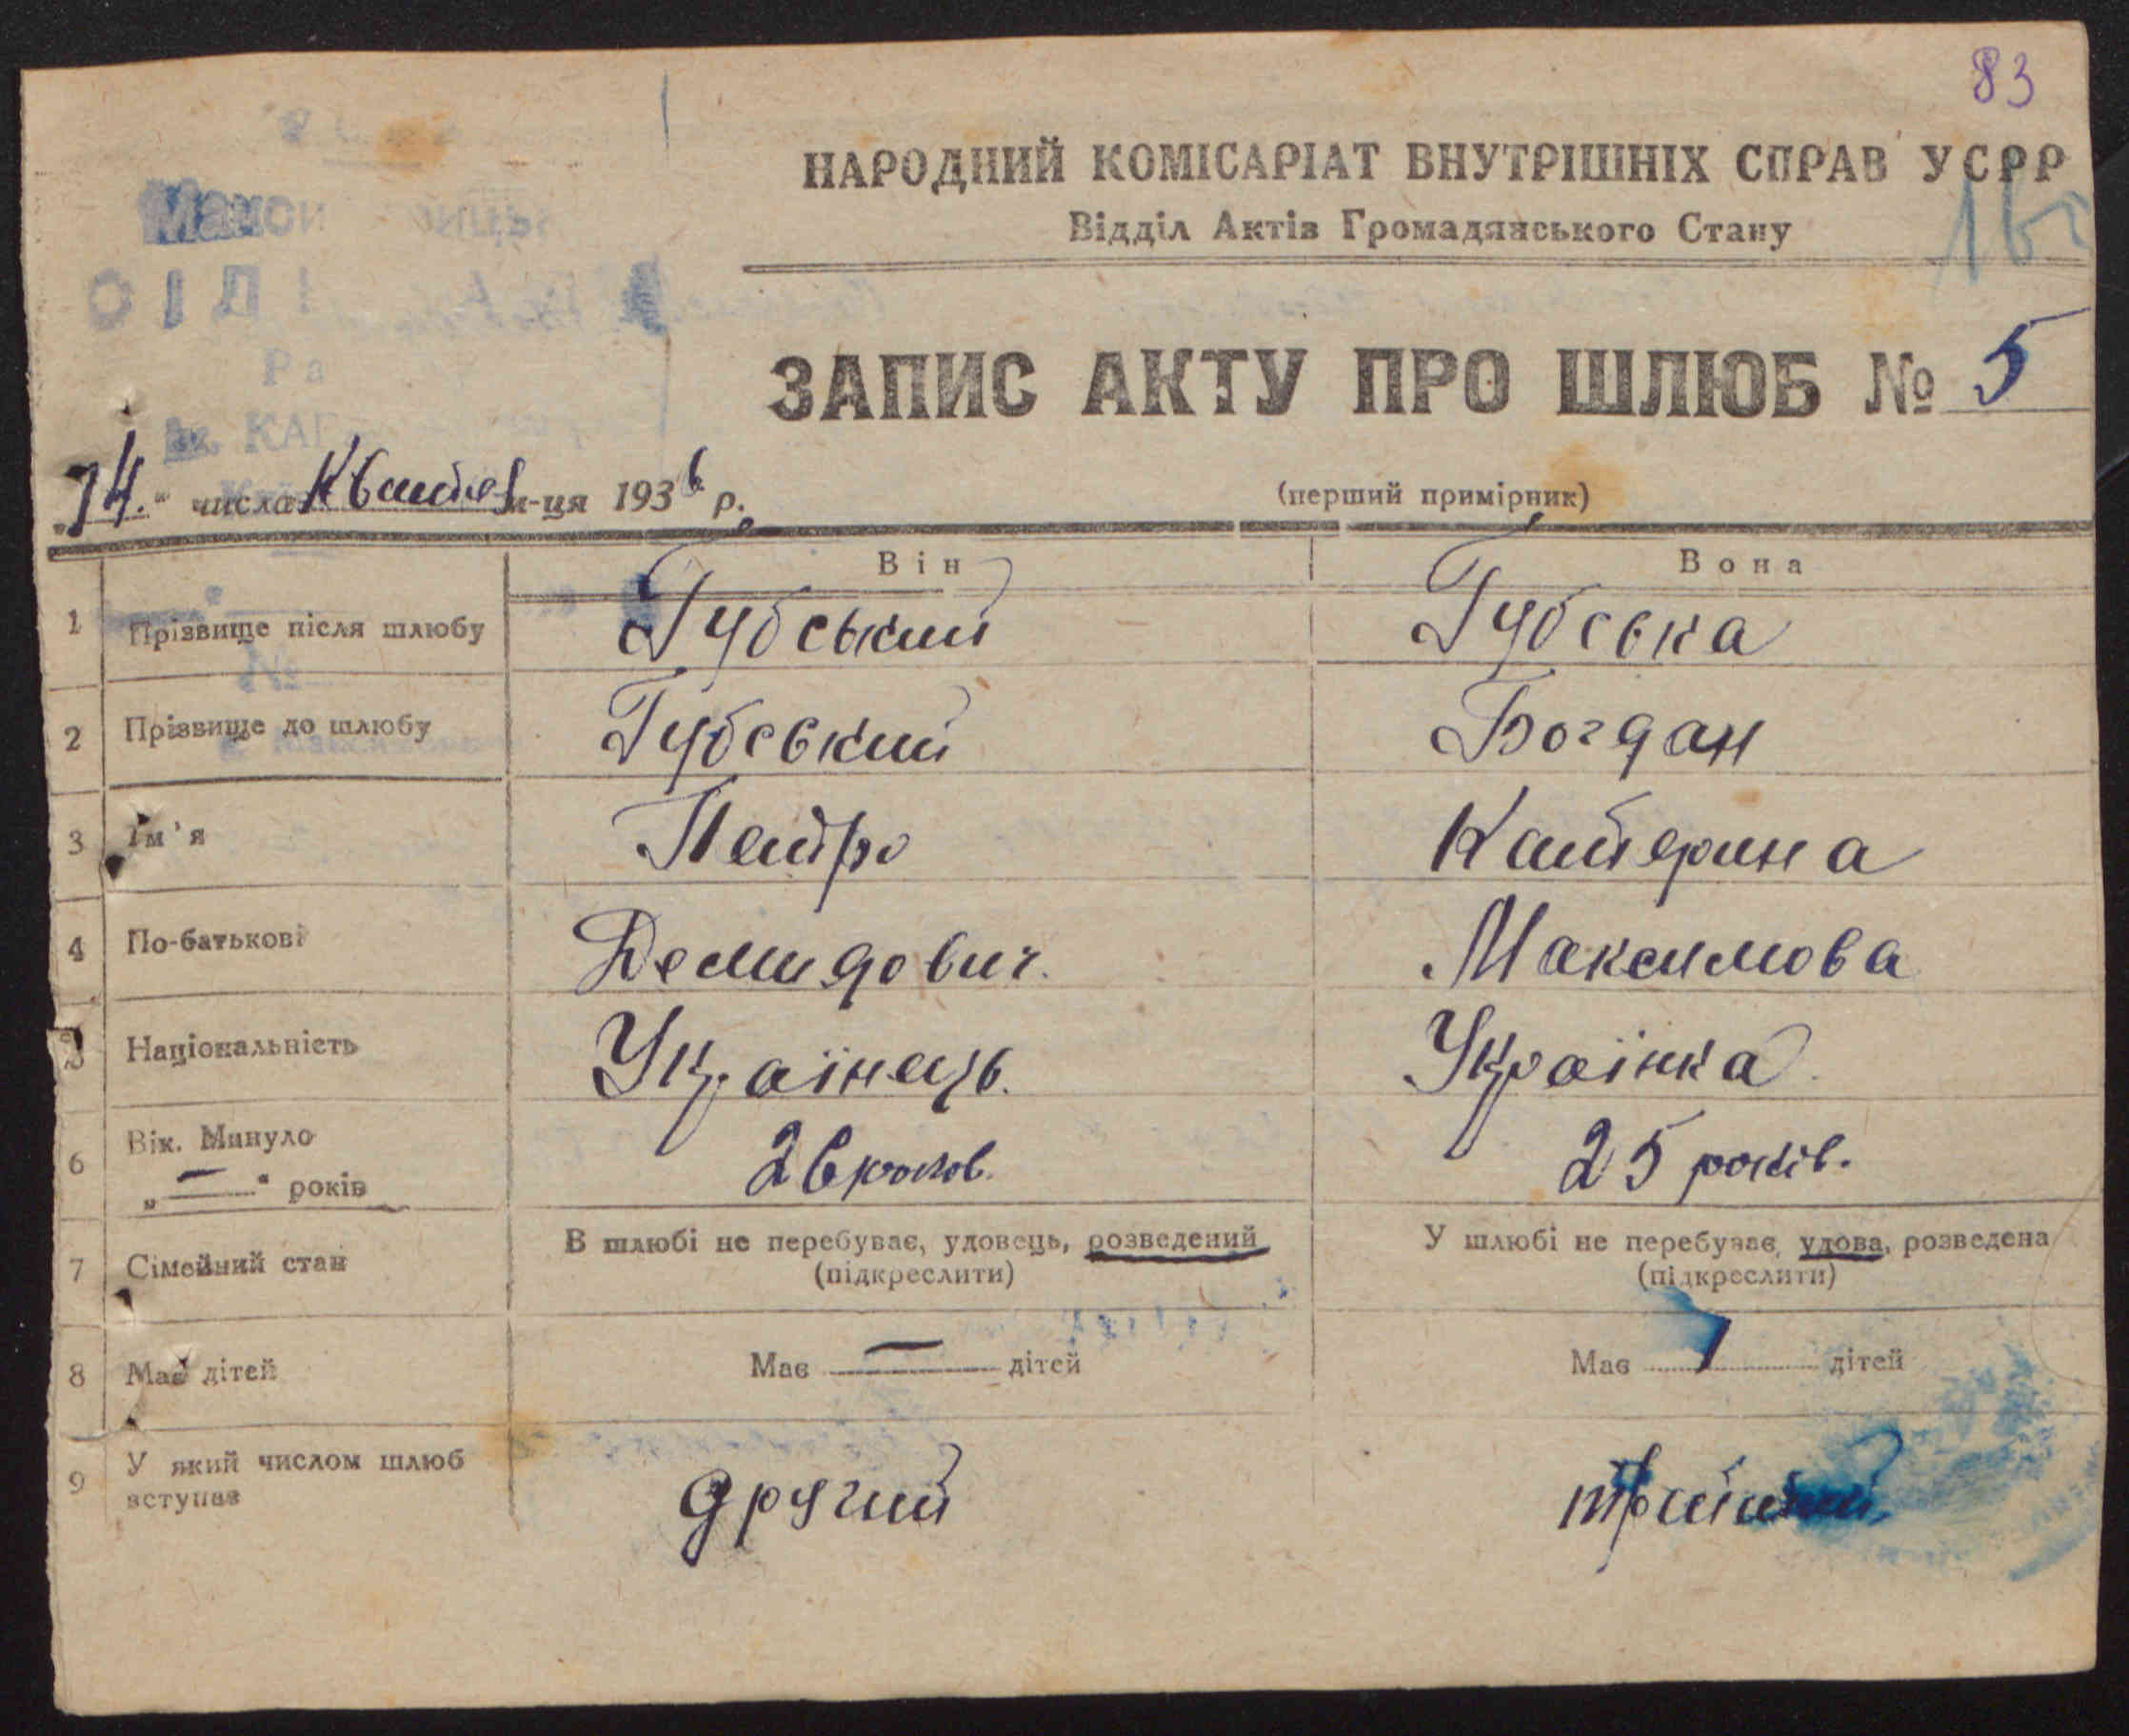 83
НАРОДНИЙ КОМІСАРІАТ ВНУТРІШНІХ СПРАВ УСРР
Відділ Актів Громадянського Стану
ЗАПИС АКТУ ПРО ШЛЮБ № 5
„14.“ числа Квітня м-ця 1936 р.
(перший примірник)
Він Вона
1 Прізвище після шлюбу Губський Губська
2 Прізвище до шлюбу Губський Богдан
3 Ім'я Петро Катерина
4 По-батькові Демидович. Максимова
5 Національність Українець. Українка
6 Вік. Минуло „—“ років 26 років. 25 років.
7 Сімейний стан В шлюбі не перебуває, удовець, розведений У шлюбі не перебуває, удова, розведена
(підкреслити) (підкреслити)
8 Має дітей Має — дітей Має 1 дітей
9 У який числом шлюб вступає другий третий